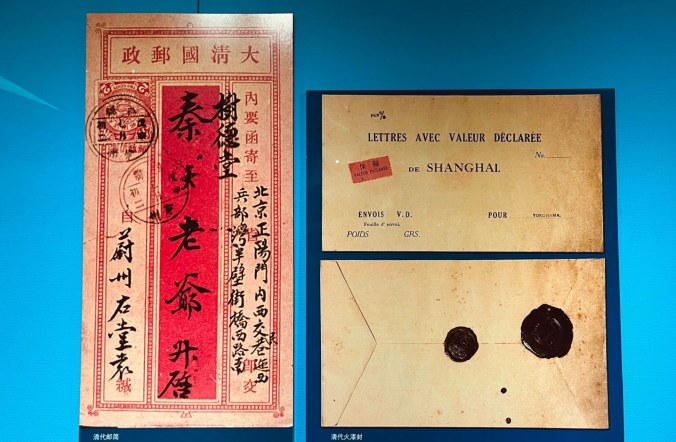 大清國郵政
內要函寄至
北京正陽門內西交民巷迤西
兵部灣半壁街橋西路南
樹德堂
秦
老爺升啓
自
蔚州右堂袁
緘
LETTRES AVEC VALEUR DÉCLARÉE
No.
保險
VALEUR DÉCLARÉE
DE SHANGHAI.
ENVOIS V.D.
POUR
YOKOHAMA.
Feuille d'envoi.
POIDS GRS.
清代邮筒
清代火漆封